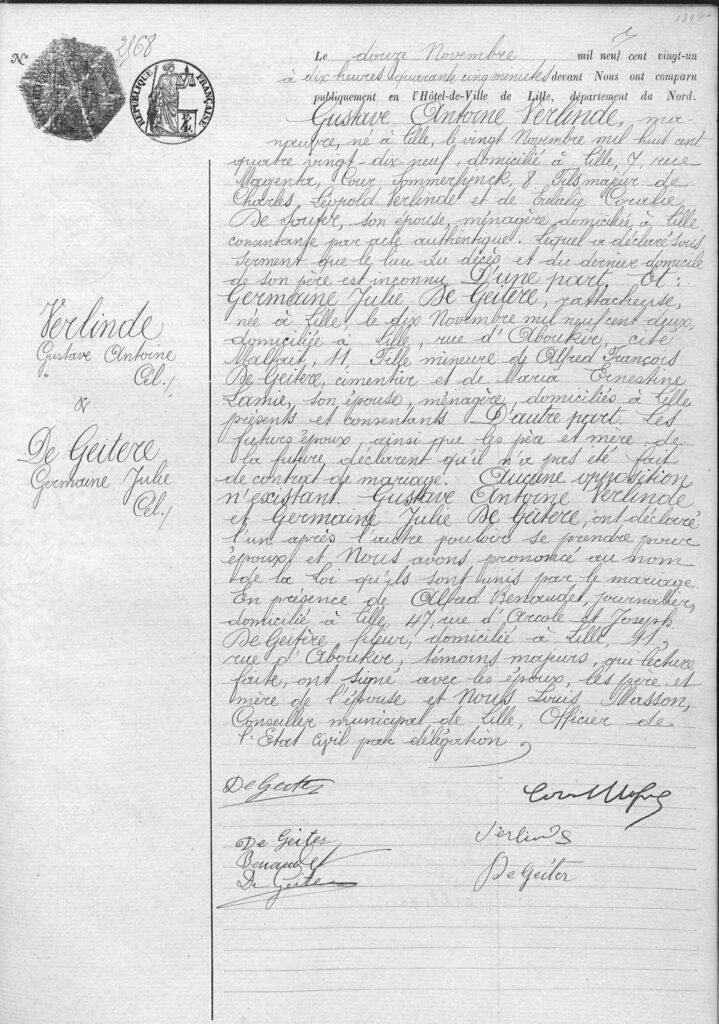 1394
Nº 2168
RÉPUBLIQUE FRANÇAISE
Le douze Novembre mil neuf cent vingt-un
à dix heures quarante cinq minutes devant Nous ont comparu
publiquement en l'Hôtel-de-Ville de Lille, département du Nord.
Gustave Antoine Verlinde, ma-
nœuvre, né à Lille, le vingt Novembre mil huit cent
quatre vingt-dix-neuf, domicilié à Lille, 7, rue
Magenta, Cour Sommerlynck, 8. Fils majeur de
Charles, Léopold Verlinde et de Eulalie Coralie
De , son épouse, ménagère, domiciliée à Lille
consentante par acte authentique. Lequel a déclaré sous
serment que le lieu du décès et du dernier domicile
de son père est inconnu. D'une part, Et :
Germaine Julie De Geitere, rattacheuse,
née à Lille, le dix Novembre mil neuf cent deux,
domiciliée à Lille, rue d'Aboukir, cité
Malfait, 11. Fille mineure de Alfred François
De Geitere, cimentier et de Maria Ernestine
Lamie, son épouse, ménagère, domiciliés à Lille
présents et consentants. D'autre part. Les
futurs époux, ainsi que les père et mère de
la future, déclarent qu'il n'a pas été fait
de contrat de mariage. Aucune opposition
n'existant. Gustave Antoine Verlinde
et Germaine Julie De Geitere, ont déclaré
l'un après l'autre vouloir se prendre pour
époux et Nous avons prononcé au nom
de la Loi qu'ils sont unis par le mariage.
En présence de Alfred Benaudet, journalier,
domicilié à Lille, 47, rue d'Arcole et Joseph
De Geitère, fileur, domicilié à Lille, 41,
rue d'Aboukir, témoins majeurs, qui lecture
faite, ont signé avec les époux, les père et
mère de l'épouse et Nous Louis Masson,
Conseiller municipal de Lille, Officier de
l'Etat Civil par délégation
Verlinde
Gustave Antoine
Cél./
&
De Geitere
Germaine Julie
Cél./
De Geiter
De Geiter
Verlinde
Benaudet
De Geiter
De Geiter